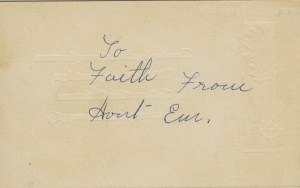 To
Faith From
Aunt Em.